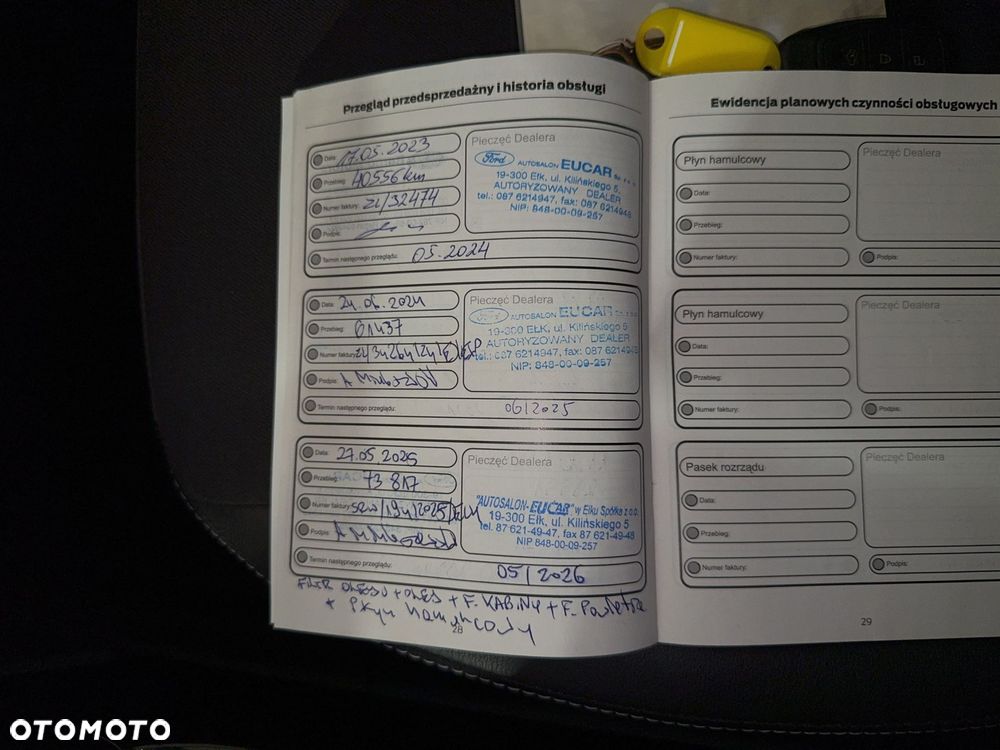 Przegląd przedsprzedażny i historia obsługi
Data: 17.05.2023
Przebieg: 40556 km
Numer faktury: ZL/32474
Podpis:
Termin następnego przeglądu: 05.2024
Pieczęć Dealera
Ford AUTOSALON EUCAR Sp. z o.o.
19-300 Ełk, ul. Kilińskiego 5,
AUTORYZOWANY DEALER
tel.: 087 6214947, fax: 087 6214948
NIP: 848-00-09-257
Data: 24.06.2024
Przebieg: 61437
Numer faktury:
Podpis:
Termin następnego przeglądu: 06/2025
Pieczęć Dealera
Ford AUTOSALON EUCAR
19-300 EŁK, ul. Kilińskiego 5
AUTORYZOWANY DEALER
tel.: 087 6214947, fax: 087 6214948
NIP: 848-00-09-257
Data: 27.05.2025
Przebieg: 73 817
Numer faktury:
Podpis:
Termin następnego przeglądu: 05/2026
Pieczęć Dealera
"AUTOSALON-EUCAR" w Ełku Spółka z o.o.
19-300 Ełk, ul. Kilińskiego 5
tel. 87 621-49-47, fax 87 621-49-48
NIP 848-00-09-257
FILTR OLEJU + OLEJ + F. KABINY + F. Powietrza
+ Płyn hamulcowy
28
Ewidencja planowych czynności obsługowych
Płyn hamulcowy
Data:
Przebieg:
Numer faktury:
Pieczęć Dealera
Podpis:
Płyn hamulcowy
Data:
Przebieg:
Numer faktury:
Pieczęć Dealera
Podpis:
Pasek rozrządu
Data:
Przebieg:
Numer faktury:
Pieczęć Dealera
Podpis:
29
OTOMOTO